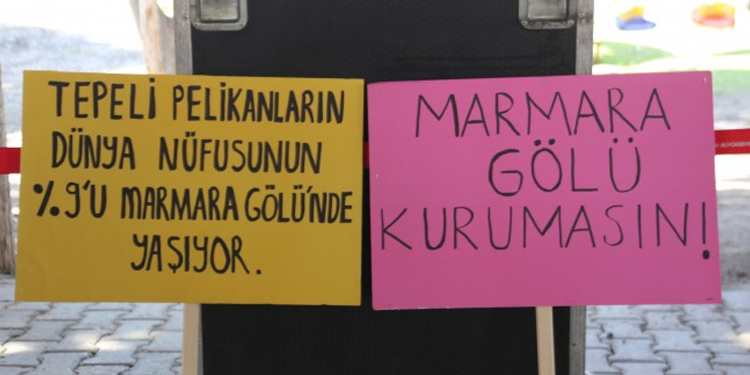 TEPELİ PELİKANLARIN
DÜNYA NÜFUSUNUN
%9'U MARMARA GÖLÜ'NDE
YAŞIYOR.
MARMARA
GÖLÜ
KURUMASIN!